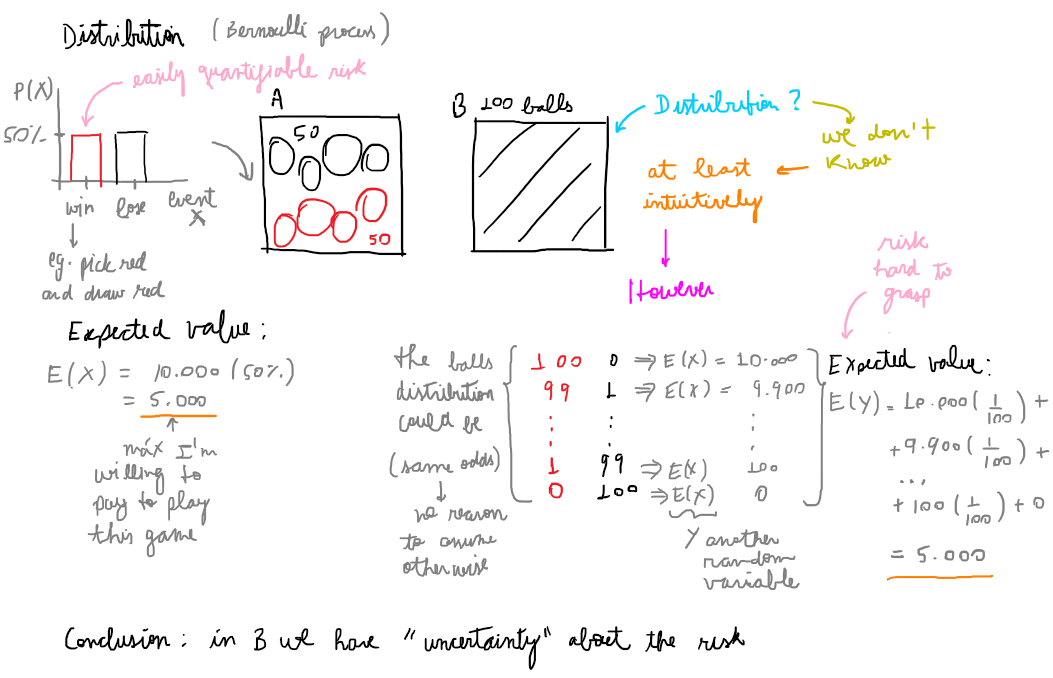 Distribution (Bernoulli process)
easily quantifiable risk
P(X)
50%
win lose event X
eg. pick red
and draw red
A
50
50
B 100 balls
Distribution ?
we don't
know
at least
intuitively
However
risk
hard to
grasp
Expected value:
E(X) = 10.000 (50%)
= 5.000
máx I'm
willing to
pay to play
this game
the balls
distribution
could be
(same odds)
no reason
to assume
otherwise
100 0 ⇒ E(X) = 10.000
99 1 ⇒ E(X) = 9.900
⋮ ⋮ ⋮
1 99 ⇒ E(X) 100
0 100 ⇒ E(X) 0
Y another
random
variable
Expected value:
E(Y) = 10.000 (1/100) +
+ 9.900 (1/100) +
...
+ 100 (1/100) + 0
= 5.000
Conclusion: in B we have "uncertainty" about the risk